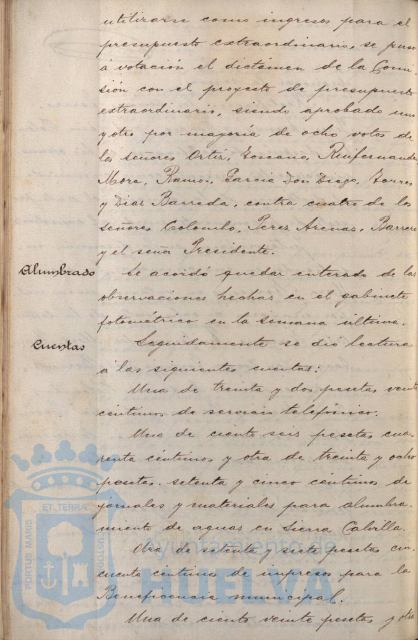 utilizarse como ingresos para el
presupuesto extraordinario, se puso
á votación el dictámen de la Comi-
sión con el proyecto de presupuesto
extraordinario, siendo aprobado uno
y otro por mayoria de ocho votos de
los señores Ortiz, Toscano, Ruifernandez
Mora, Ramos, Garcia Don Diego, Torres
y Diaz Barreda, contra cuatro de los
señores Colombo, Perez Arenas, Barrera
y el señor Presidente.
Alumbrado
Se acordó quedar enterado de las
observaciones hechas en el gabinete
fotométrico en la semana última.
Cuentas
Seguidamente se dió lectura
á las siguientes cuentas:
Una de treinta y dos pesetas veinte
céntimos de servicio telefónico.
Una de ciento seis pesetas cua-
renta céntimos y otra de treinta y ocho
pesetas setenta y cinco céntimos de
jornales y materiales para alumbra-
miento de aguas en Sierra Calvilla.
Otra de setenta y siete pesetas cin-
cuenta céntimos de impresos para la
Beneficencia municipal.
Una de ciento veinte pesetas y otra
PORTUS MARIS ET TERRAE CUSTODIA
Ayuntamiento de
HUELVA